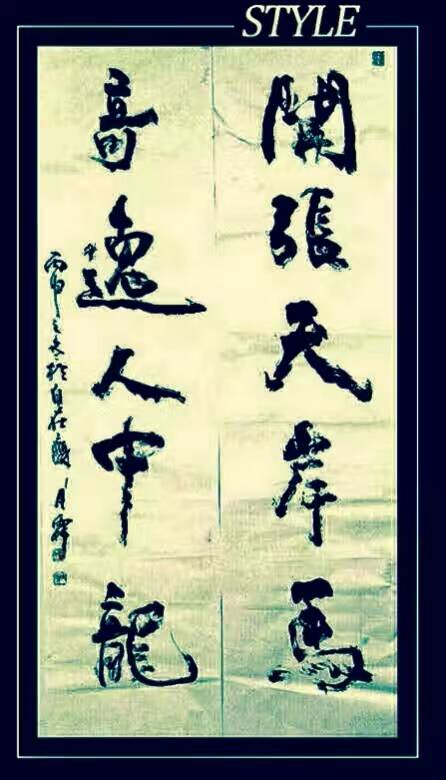 STYLE
開張天岸馬
奇逸人中龍
丙申之冬於自在齋 月